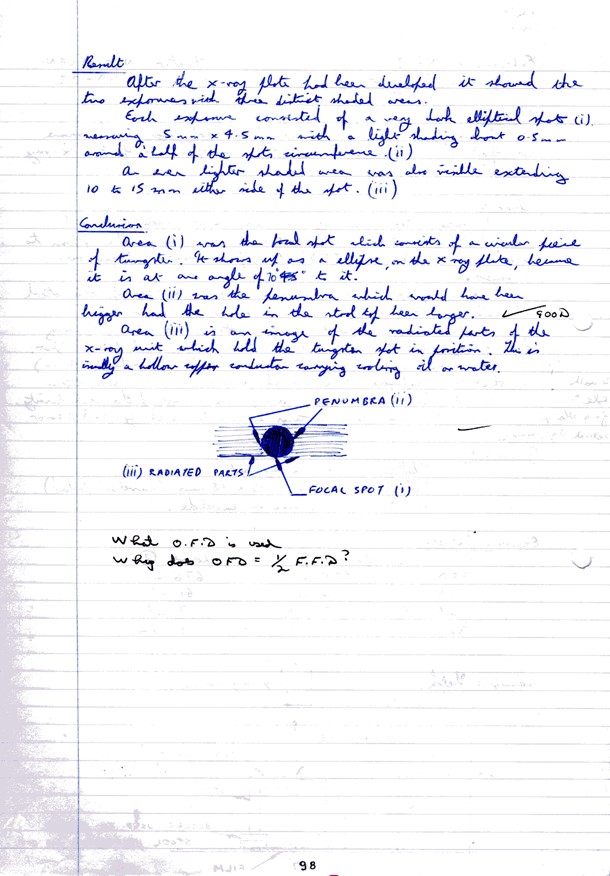 Result
After the x-ray plate had been developed it showed the
two exposures with three distinct shaded areas.
Each exposure consisted of a very dark elliptical spots (i).
measuring 5mm x 4.5mm with a light shading bout 0.5mm
around a half of the spots circumference. (ii)
An even lighter shaded area was also visible extending
10 to 15 mm either side of the spot. (iii)
Conclusion
Area (i) was the focal spot which consists of a circular piece
of tungsten. It shows up as a ellipse, on the x ray plate, because
it is at an angle of to it.
Area (ii) was the penumbra which would have been
bigger had the hole in the steel top been larger. GOOD
Area (iii) is an image of the radiated parts of the
x-ray unit which hold the tungsten spot in position. This is
usually a hollow copper conductor carrying cooling oil or water.
PENUMBRA (ii)
(iii) RADIATED PARTS
FOCAL SPOT (i)
What O.F.D is used
Why does OFD = 1/2 F.F.D?
98